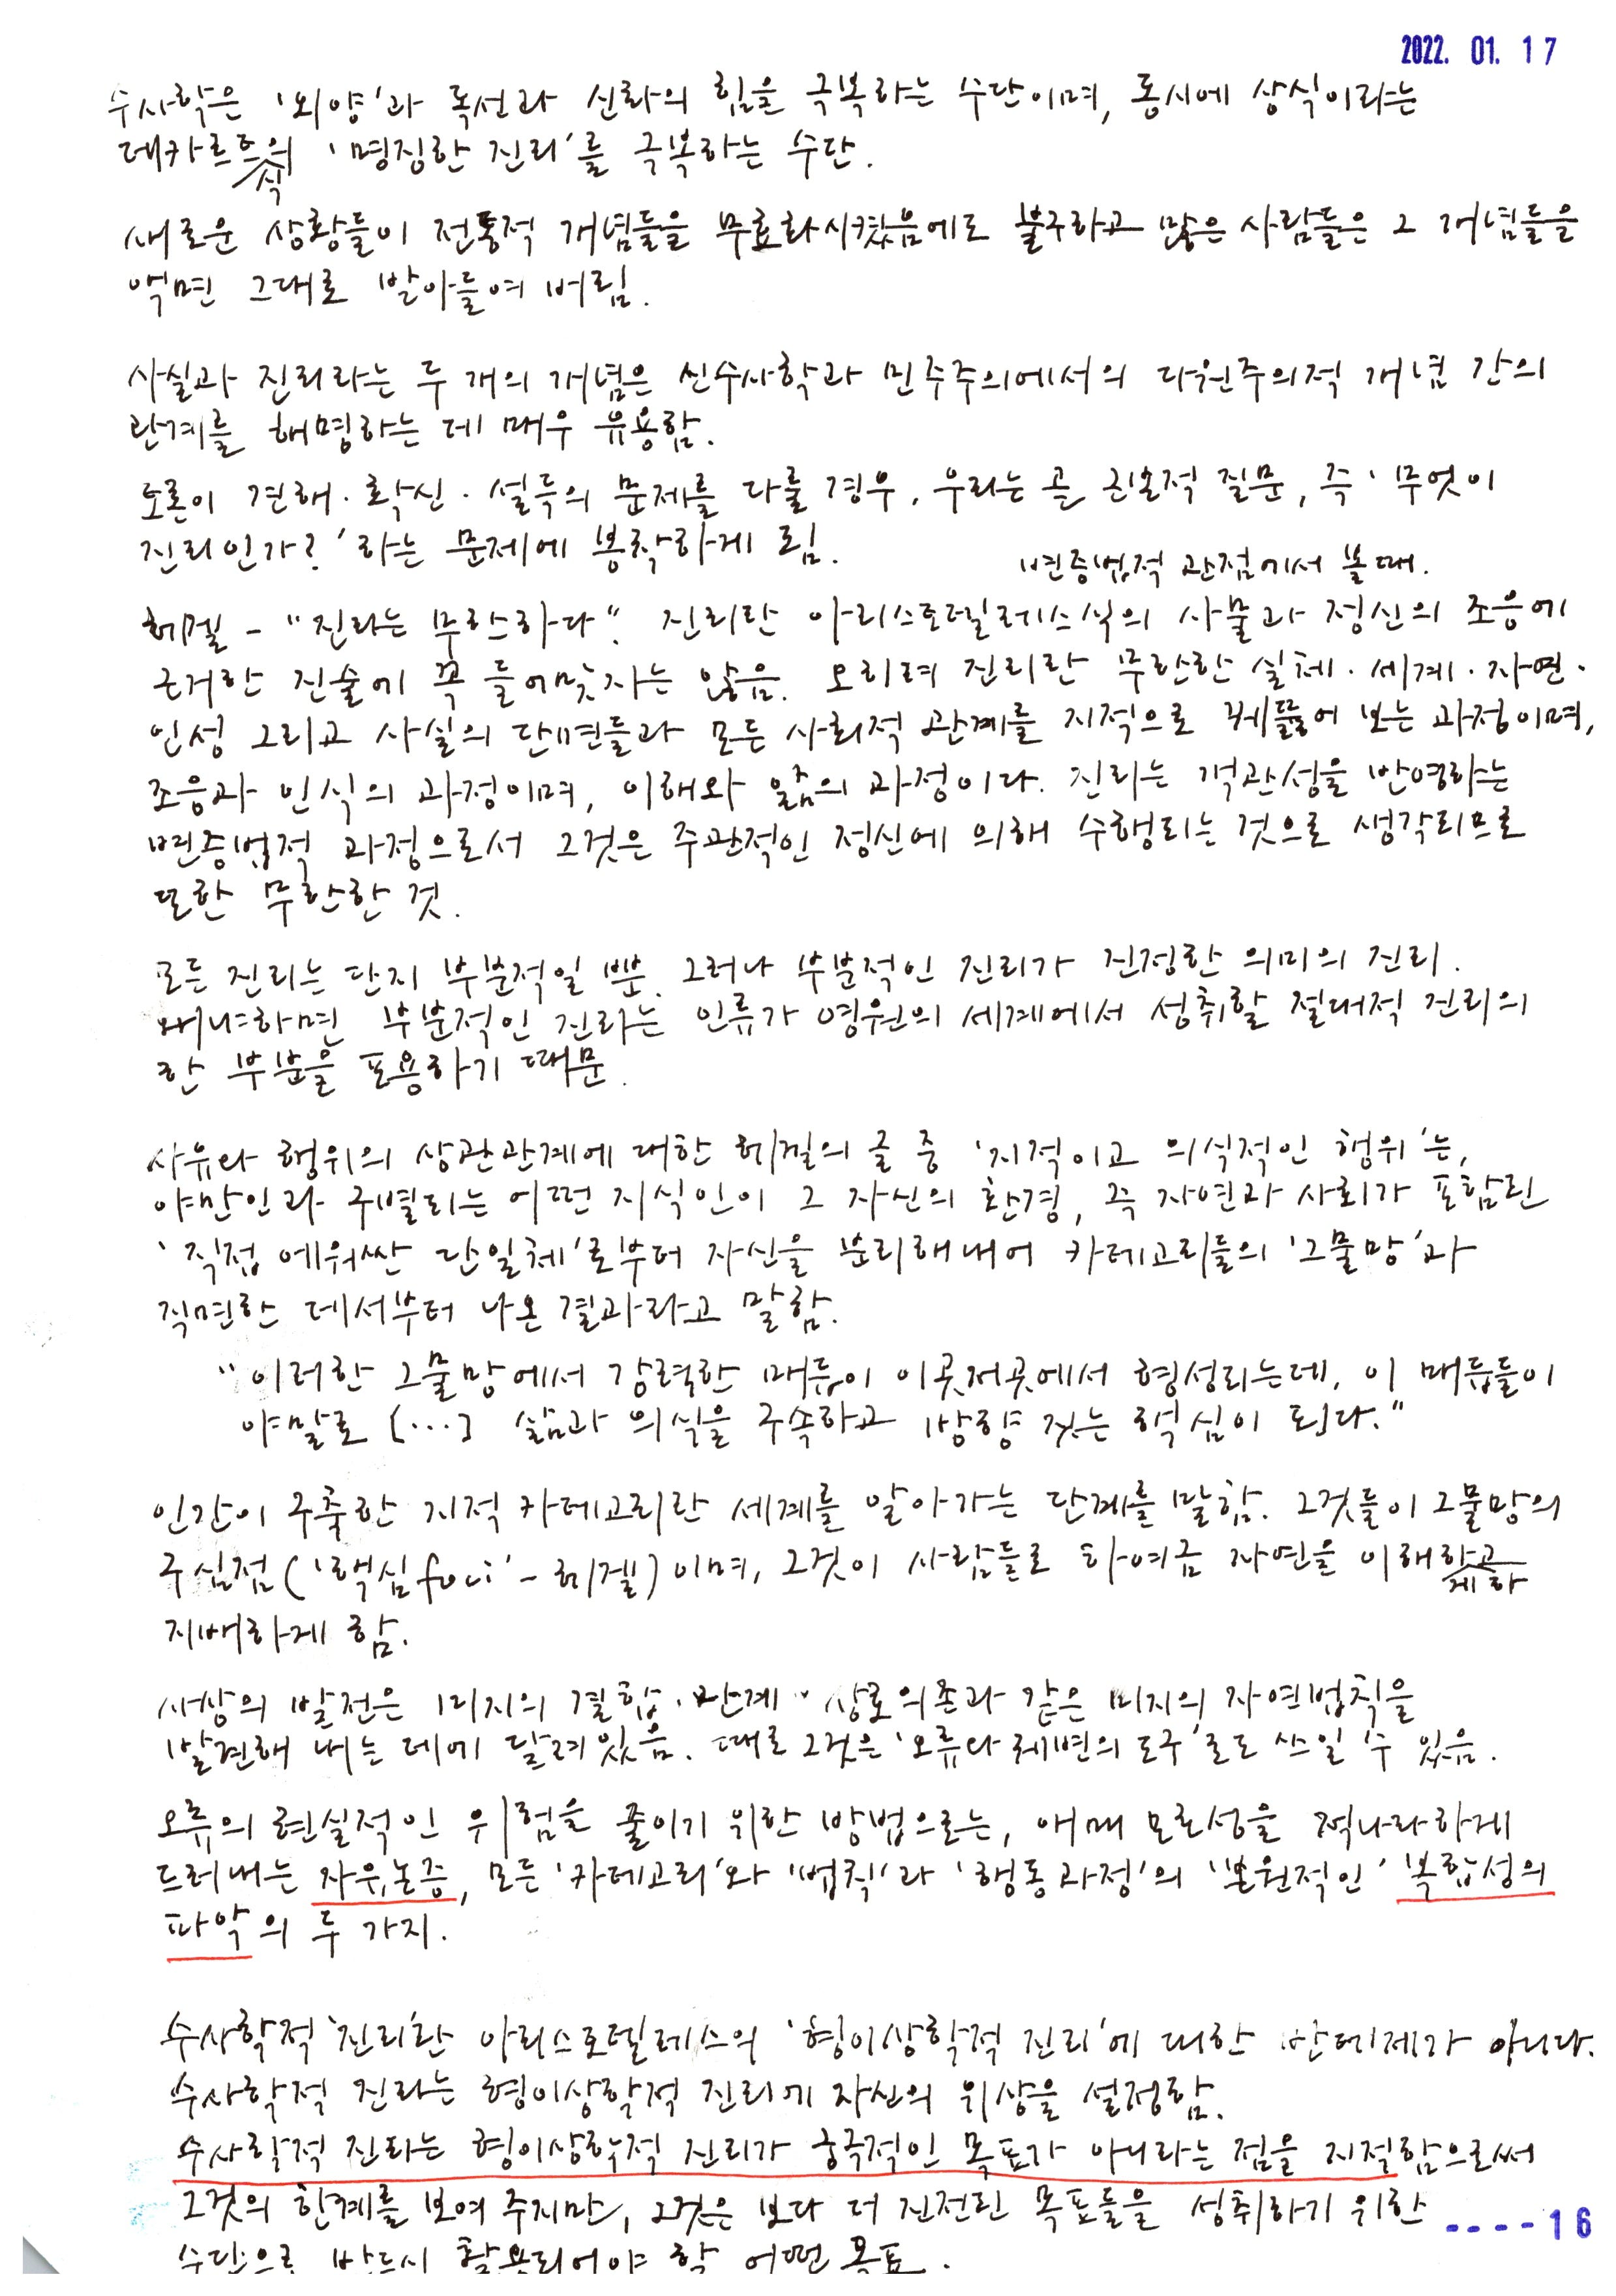 2022. 01. 17
수사학은 '외양'과 독선과 신화의 힘을 극복하는 수단이며, 동시에 상식이라는
데카르트의 '명징한 진리'를 극복하는 수단.
식
새로운 상황들이 전통적 개념들을 무효화시켰음에도 불구하고 많은 사람들은 그 개념들을
액면 그대로 받아들여 버림.
사실과 진리라는 두 개의 개념은 신수사학과 민주주의에서의 다원주의적 개념 간의
관계를 해명하는 데 매우 유용함.
토론이 견해·확신·설득의 문제를 다룰 경우, 우리는 곧 근본적 질문, 즉 '무엇이
진리인가?'하는 문제에 봉착하게 됨.
변증법적 관점에서 볼 때.
헤겔 - "진리는 무한하다". 진리란 아리스토텔레스식의 사물과 정신의 조응에
근거한 진술에 꼭 들어맞지는 않음. 오히려 진리란 무한한 실체·세계·자연·
인성 그리고 사실의 단면들과 모든 사회적 관계를 지적으로 꿰뚫어 보는 과정이며,
조응과 인식의 과정이며, 이해와 앎의 과정이다. 진리는 객관성을 반영하는
변증법적 과정으로서 그것은 주관적인 정신에 의해 수행되는 것으로 생각되므로
또한 무한한 것.
모든 진리는 단지 부분적일 뿐. 그러나 부분적인 진리가 진정한 의미의 진리.
왜냐하면 부분적인 진리는 인류가 영원의 세계에서 성취할 절대적 진리의
한 부분을 포용하기 때문.
사유와 행위의 상관관계에 대한 헤겔의 글 중 '지적이고 의식적인 행위'는,
야만인과 구별되는 어떤 지식인이 그 자신의 환경, 즉 자연과 사회가 포함된
'직접 에워싼 단일체'로부터 자신을 분리해내어 카테고리들의 '그물망'과
직면한 데서부터 나온 결과라고 말함.
"이러한 그물망에서 강력한 매듭이 이곳저곳에서 형성되는데, 이 매듭들이
야말로 [...] 삶과 의식을 구속하고 방향 짓는 핵심이 된다."
인간이 구축한 지적 카테고리란 세계를 알아가는 단계를 말함. 그것들이 그물망의
구심점('핵심foci'-헤겔)이며, 그것이 사람들로 하여금 자연을 이해하고
게 하
지배하게 함.
사상의 발전은 미지의 결합·관계·상호의존과 같은 미지의 자연법칙을
발견해 내는 데에 달려있음. 때로 그것은 '오류와 궤변의 도구'로도 쓰일 수 있음.
오류의 현실적인 위험을 줄이기 위한 방법으로는, 애매모호성을 적나라하게
드러내는 자유논증, 모든 '카테고리'와 '법칙'과 '행동과정'의 '본원적인' 복합성의
파악의 두 가지.
수사학적 '진리'란 아리스토텔레스의 '형이상학적 진리'에 대한 반테제가 아니다.
수사학적 진리는 형이상학적 진리에 자신의 위상을 설정함.
수사학적 진리는 형이상학적 진리가 궁극적인 목표가 아니라는 점을 지적함으로써
그것의 한계를 보여 주지만, 그것은 보다 더 진전된 목표들을 성취하기 위한
수단으로 반드시 활용되어야 할 어떤 목표.
----16